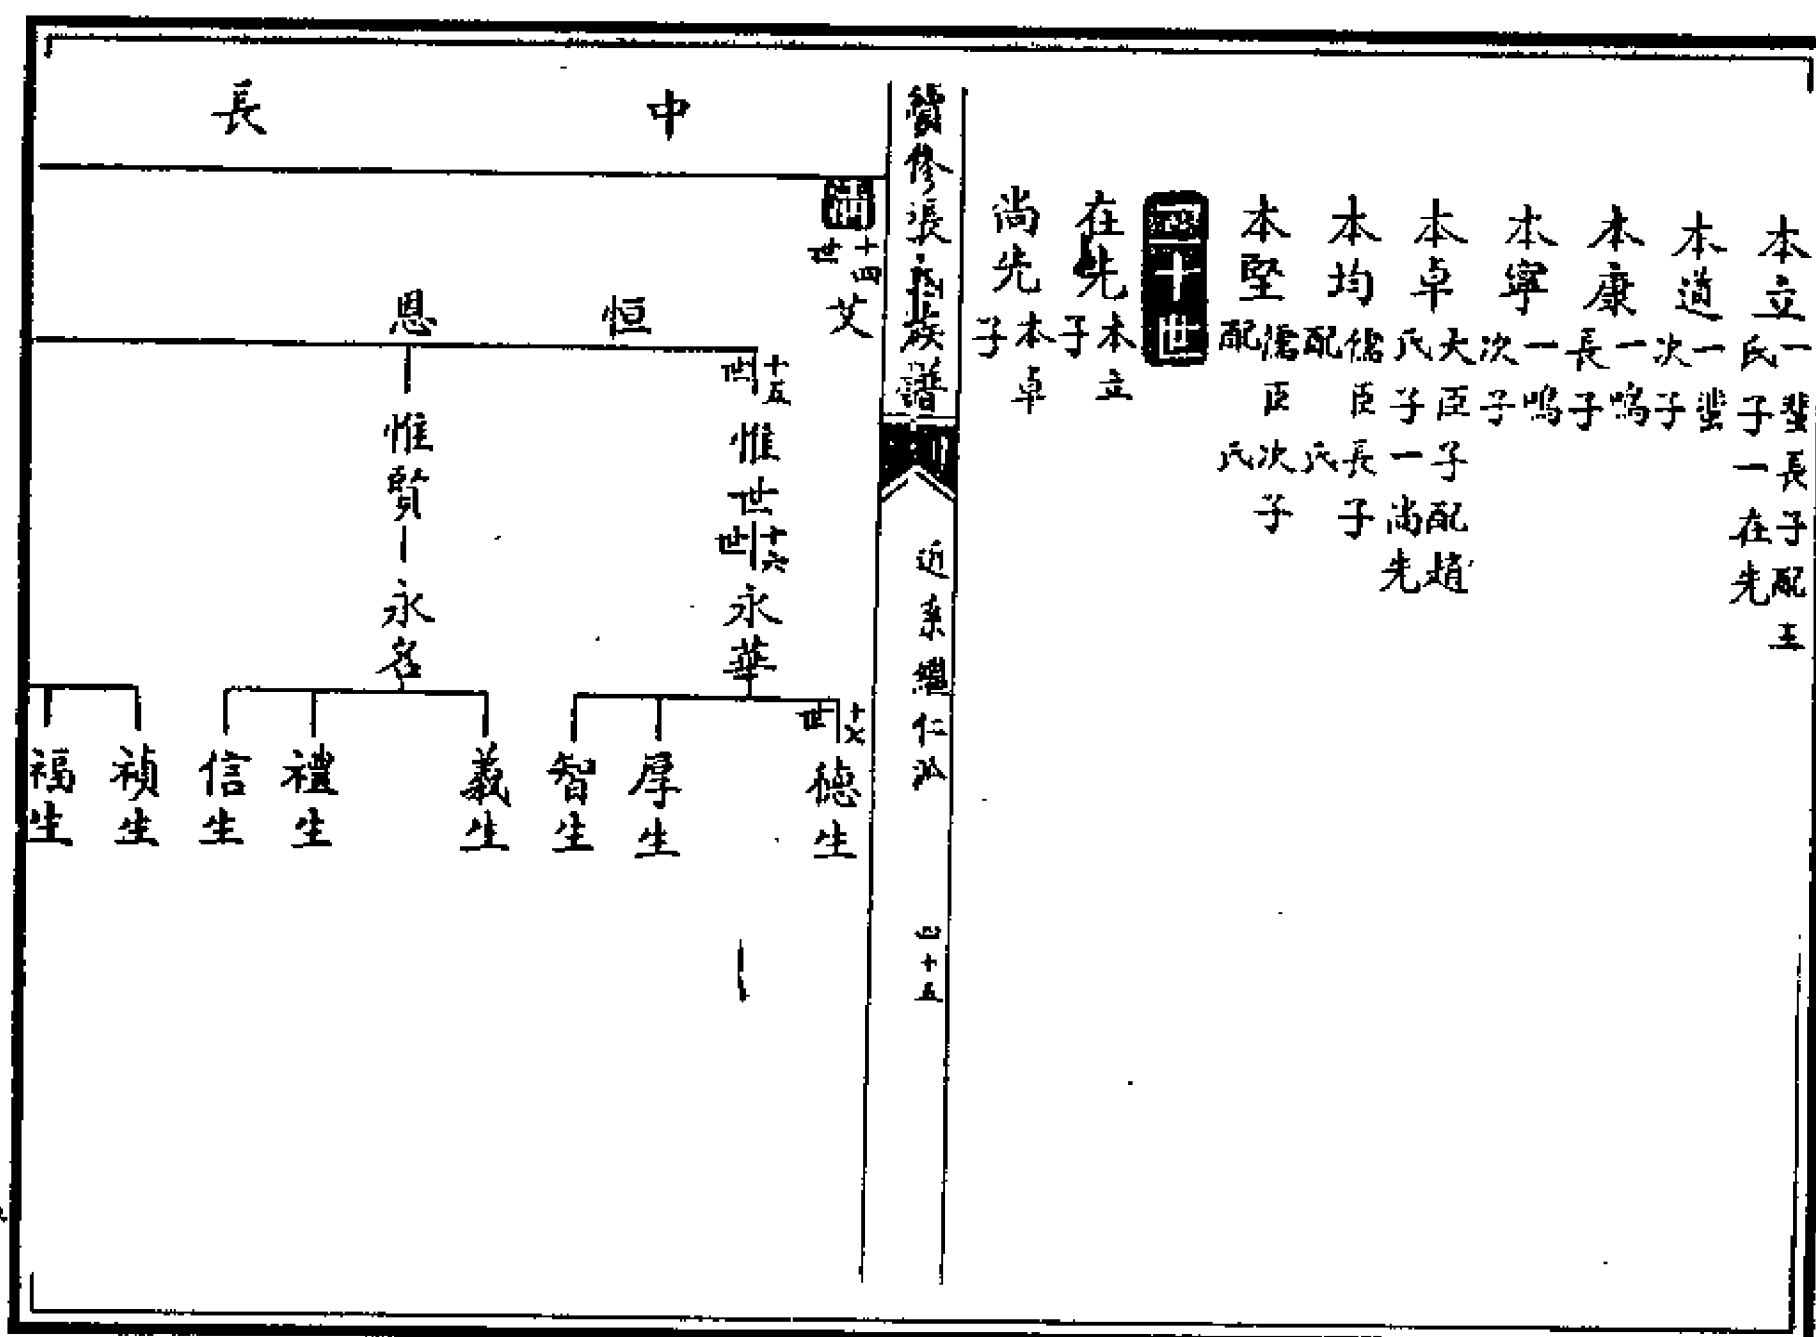 本立 一蜚長子配王氏子一在先
本道 一蜚次子
本康 一鳴長子
本寧 一鳴次子
本卓 大臣子配趙氏子一尚先
本均 儒臣長子配 氏
本堅 儒臣次子配 氏
四十世
在先 本立子
尚先 本卓子
續修張氏族譜
近東繼仁
四十五
中 長
十四世 艾 恒 恩
十五世 惟世 惟賢
十六世 永華 永名
十七世 德生 厚生 智生 義生 禮生 信生 禎生 福生